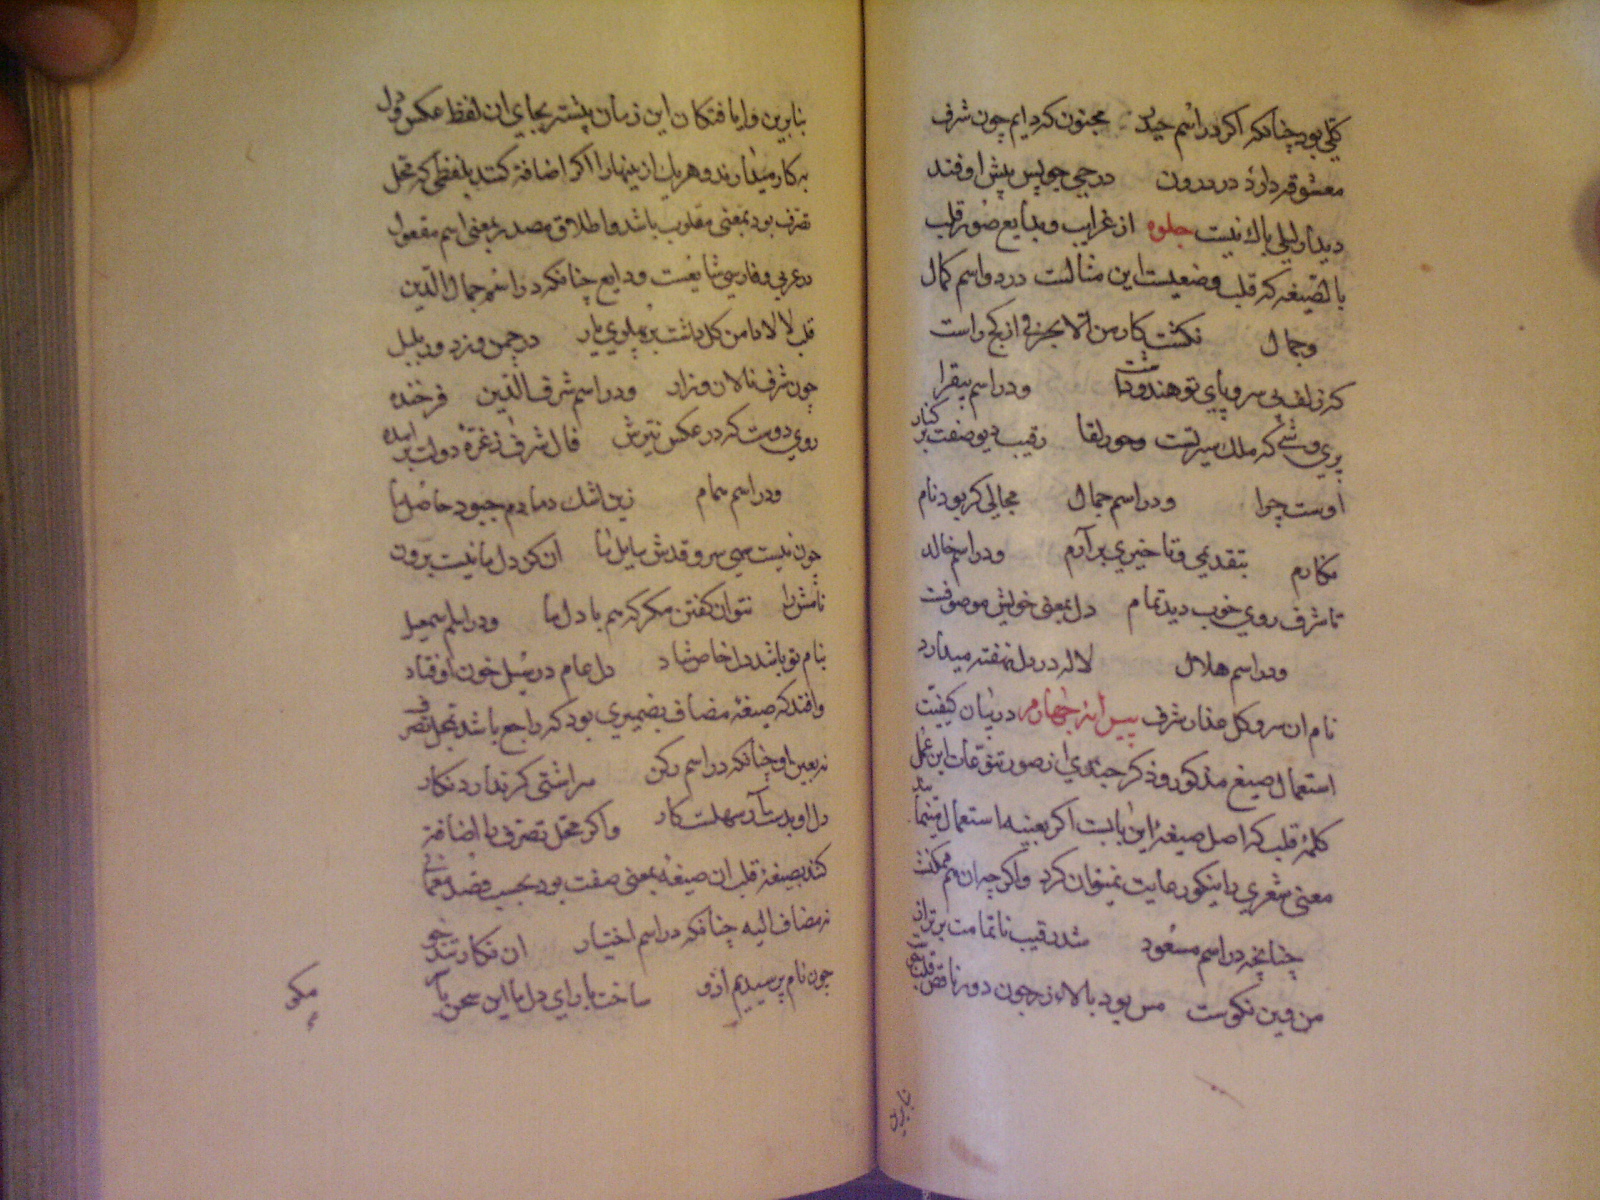 کلی بود چنانکه اکر در اسم حیدر مجنون کرد ایم چون شرف
معشوقه دارد در درون در حی جو لیس پیش او فتد
دیدار لیلی باک نیست جلوه از غرایب و بدایع صور قلب
بالصیغه که قلب وضعیست این مثالست در دو اسم کمال
و جمال نکشت کار من الا بجز فی از کج و راست
که زلف بی سر و پای تو هندو داشت و در اسم
پری وشی که ملک سیرتست و حور لقا رقیب دیو صفت بر کنار
اوست چرا و در اسم جمال مجالی کر بود نام
نکارم بتقدیمی و تاخیری بر آرم و در اسم خالد
تا شرف روی خوب دید تمام دل بمعنی خویش موصوفست
و در اسم هلال لاله در دل نهفته میدارد
نام ان سرو کل عذار شرف پیرایهٔ چهارم در بیان کیفیت
استعمال صیغ مذکور و ذکر چندی از صور تنوعات این عمل
کلمهٔ قلب که اصل صیغهٔ این بابست اکر بعینه استعمال نمایند
معنی شعری را نیکو رعایت نمیتوان کرد و اکر چه ان هم ممکنست
چنانچه در اسم مسعود شد رقیب ناتمامت برتر از
من وین نکوست مس بود بالاء زر چون دور ناقص قلب
بنابرین
بنابرین و ایافتکان این زمان پیشتر بجای ان لفظ عکس و دل
بر کار میدارند و هر یک از ینها را اکر اضافة کنند بلفظی که محل
تصرف بود بمعنی مقلوب باشد و اطلاق مصدر بمعنی اسم مفعول
در عربی و فارسی شایعست و ذایع چنانکه در اسم جمال الدین
قلب لالا با من کل داشت پهلوی یار در چمن و زد و ر بلبل
چون شرف نالان و زار و در اسم شرف الدین فرخنده
روی دوست که در عکس فال شرف ز غرهٔ دولت بر امده
و در اسم همام زین اشک دمادم چبود حاصل ما
چون نیست سهی سرو قدش مایل ما ان کز دل ما نیست برون
نامش را نتوان کفتن مکر که هم با دل ما و در اسم اسمعیل
بنام تو باشد دل خاص شاد دل عام در سیل خون اوفتاد
و افتد که صیغهٔ مضاف بضمیری بود که راجع باشد بمحل تصرف
نه بعین او چنانکه در اسم رکن سر اشتی کر ندارد نکار
دل او بدست آر سهلست کار و اکر محل تصرف را اضافة
کنند بصیغهٔ قلب ان صیغه بمعنی صفت بود بحسب قصد معمائی
نه مضاف الیه چنانکه در اسم اختیار ان نکار تند خو
چون نام پرسیدیم ازو ساخت با رای دل ما این سخن
مکر